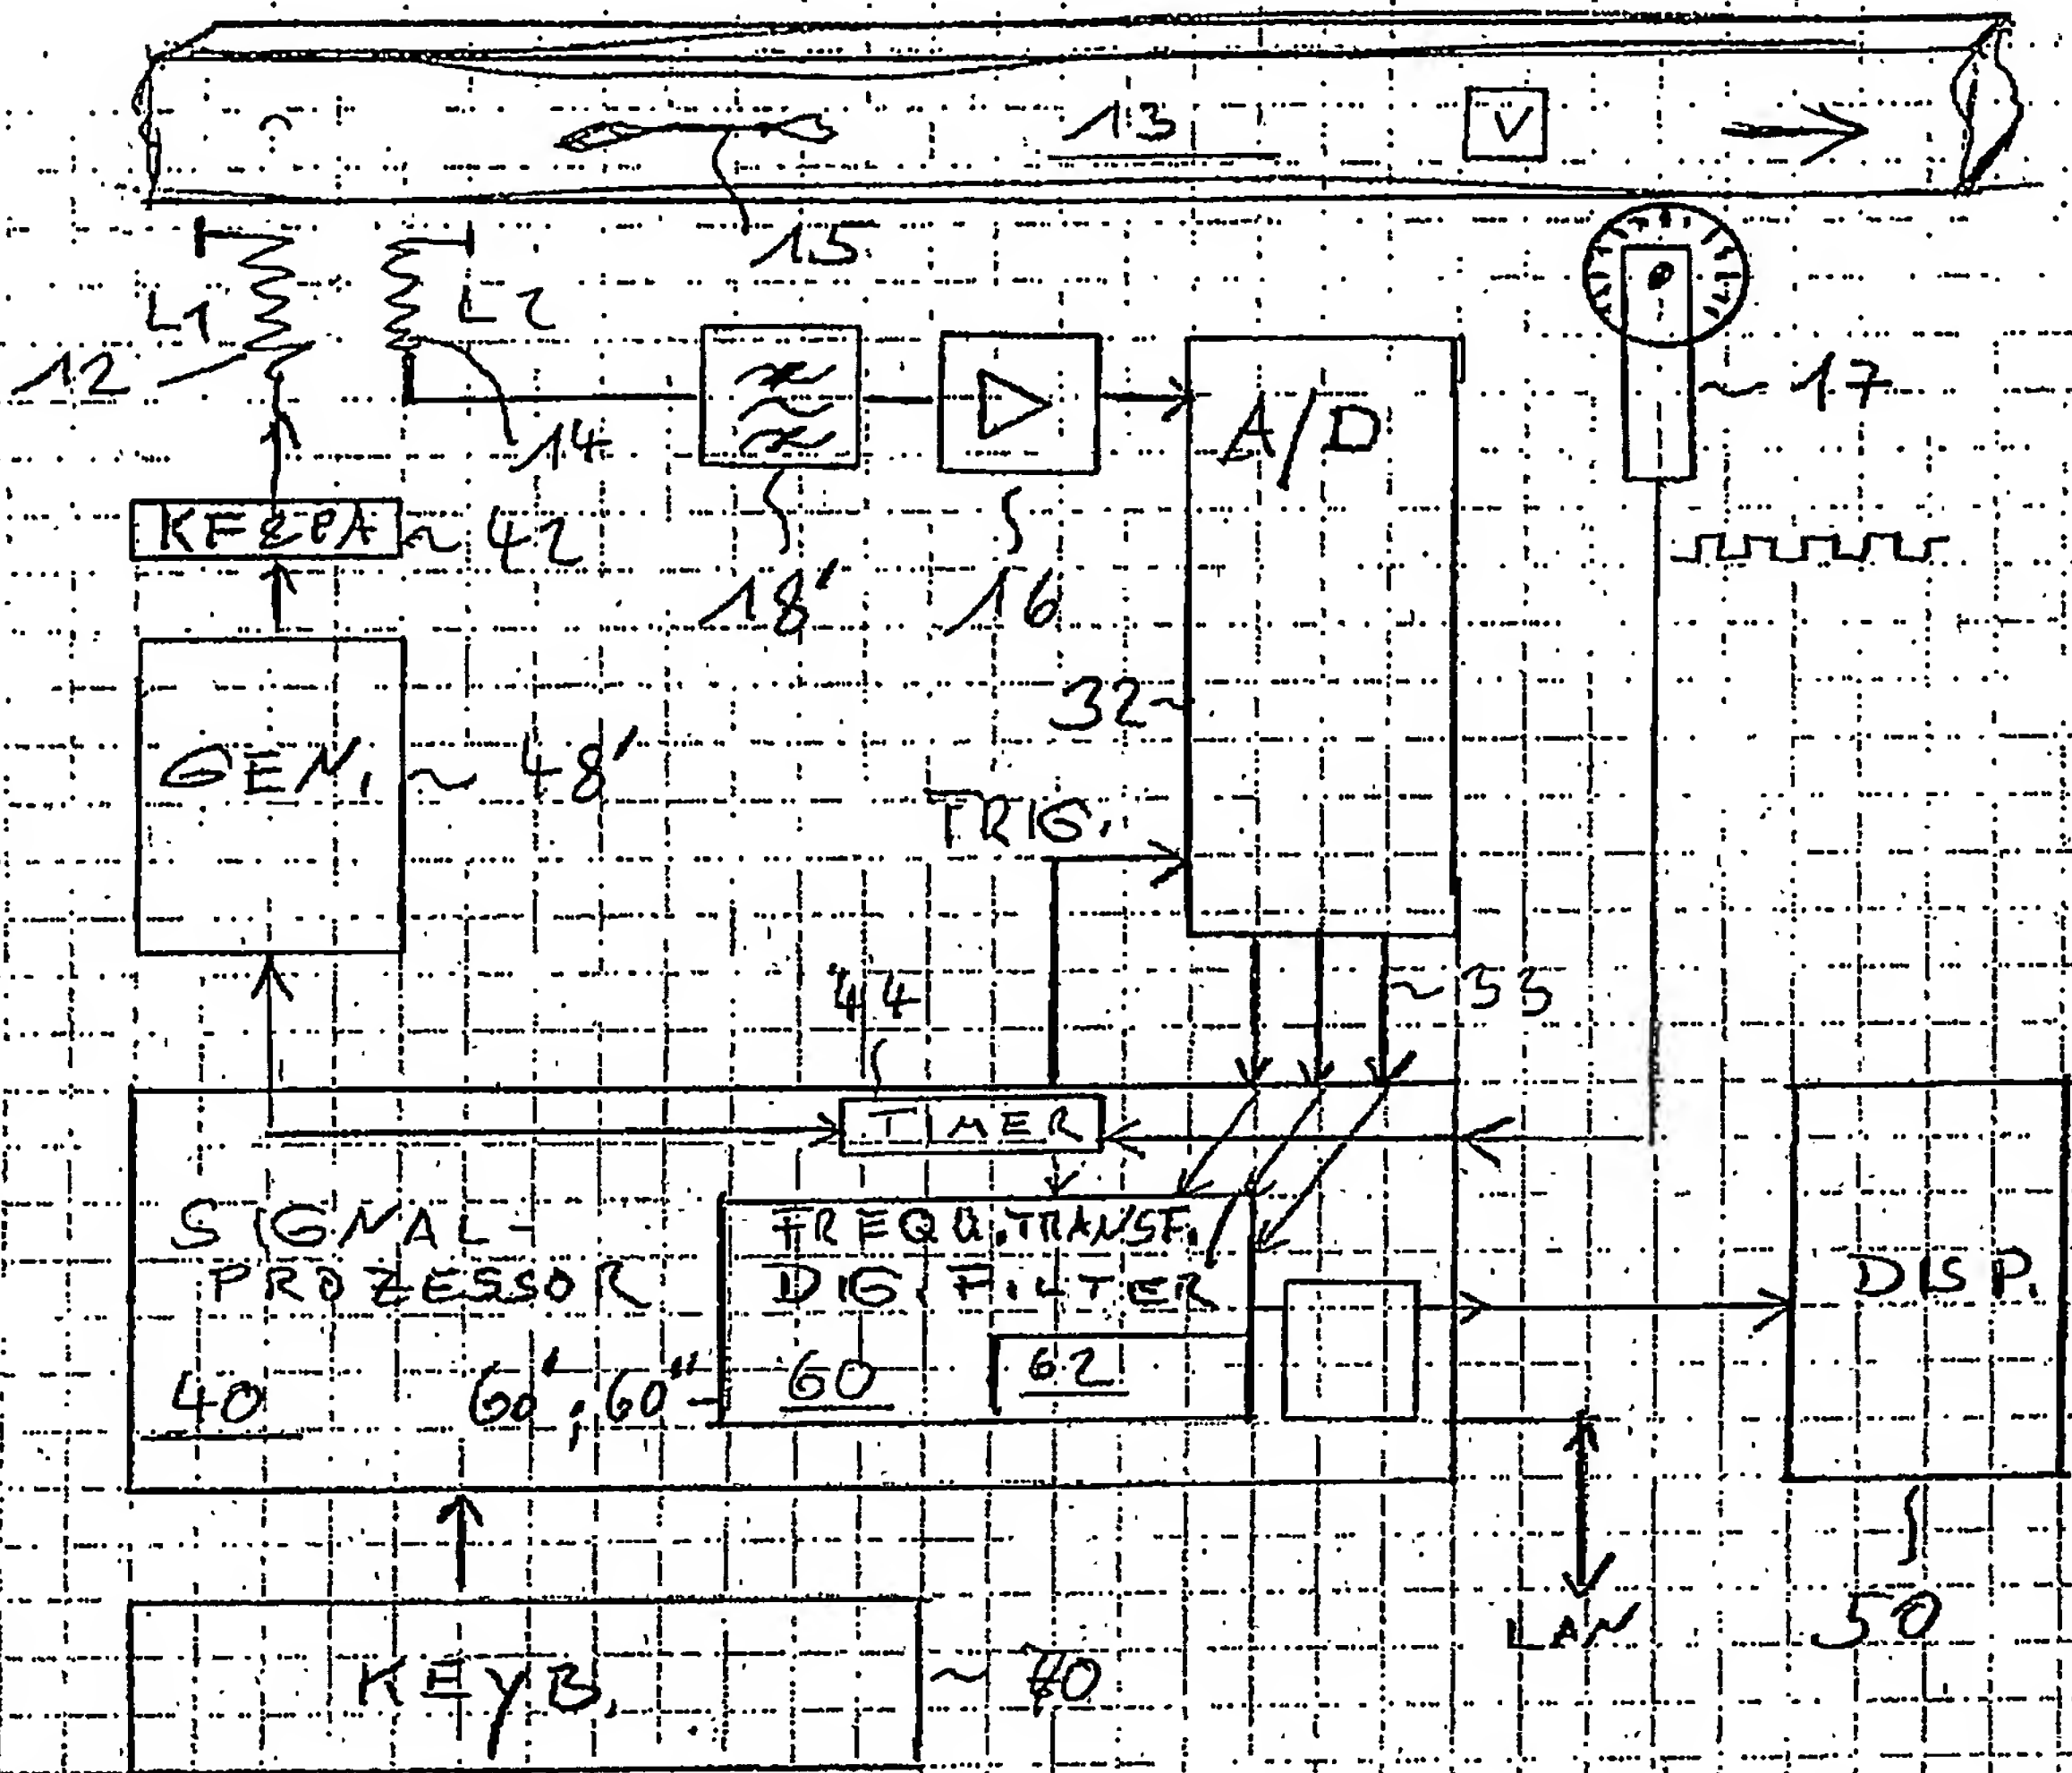 13
V
15
L1
L2
12
14
A/D
17
42
18'
16
32
GEN.
48'
TRIG.
44
33
TIMER
SIGNAL-
PROZESSOR
FREQU.TRANSF./
DIG. FILTER
DISP.
40
60', 60"
60
62
LAN
50
KEYB.